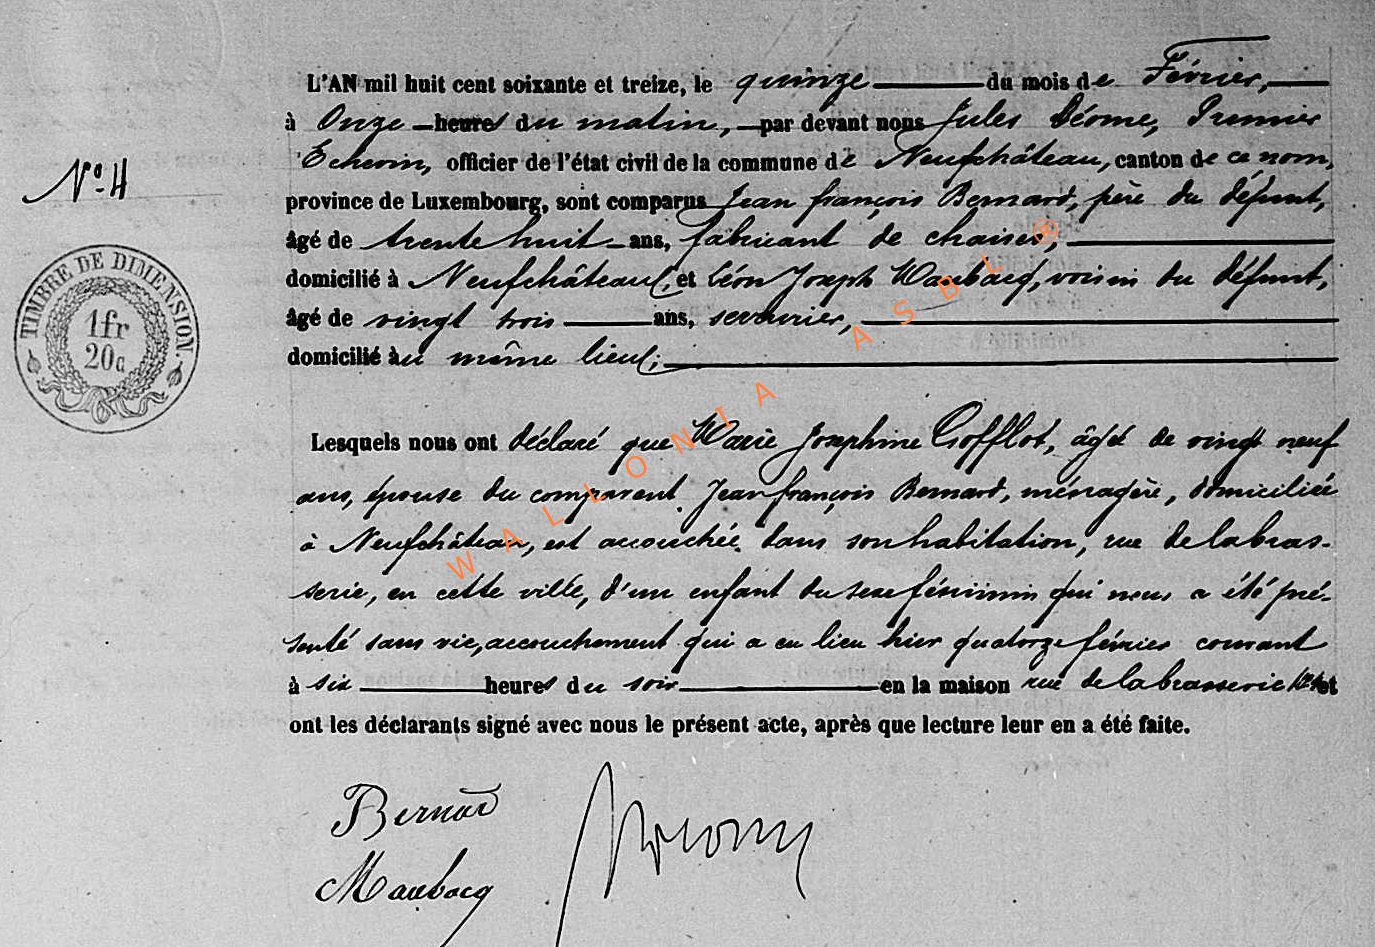 L'AN mil huit cent soixante et treize, le quinze du mois de Février,
à Onze heures du matin, par devant nous Jules Déome, Premier
Echevin, officier de l'état civil de la commune de Neufchâteau, canton de ce nom,
N° 4
province de Luxembourg, sont comparus Jean françois Bernard, père du défunt,
âgé de trente huit ans, fabricant de chaises,
domicilié à Neufchâteau, et Léon Joseph Maubacq, voisin du défunt,
âgé de vingt trois ans, serrurier,
domicilié au même lieu;
TIMBRE DE DIMENSION.
1fr
20c
Lesquels nous ont déclaré que Marie Josephine Gofflot, âgée de vingt neuf
ans, épouse du comparent Jean françois Bernard, ménagère, domiciliée
à Neufchâteau, est accouchée dans son habitation, rue de la bras-
serie, en cette ville, d'un enfant du sexe féminin qui nous a été pré-
senté sans vie, accouchement qui a eu lieu hier quatorze février courant
à six heures du soir en la maison rue de la brasserie et
ont les déclarants signé avec nous le présent acte, après que lecture leur en a été faite.
Bernard
Maubacq
WALLONIA ASBL ®